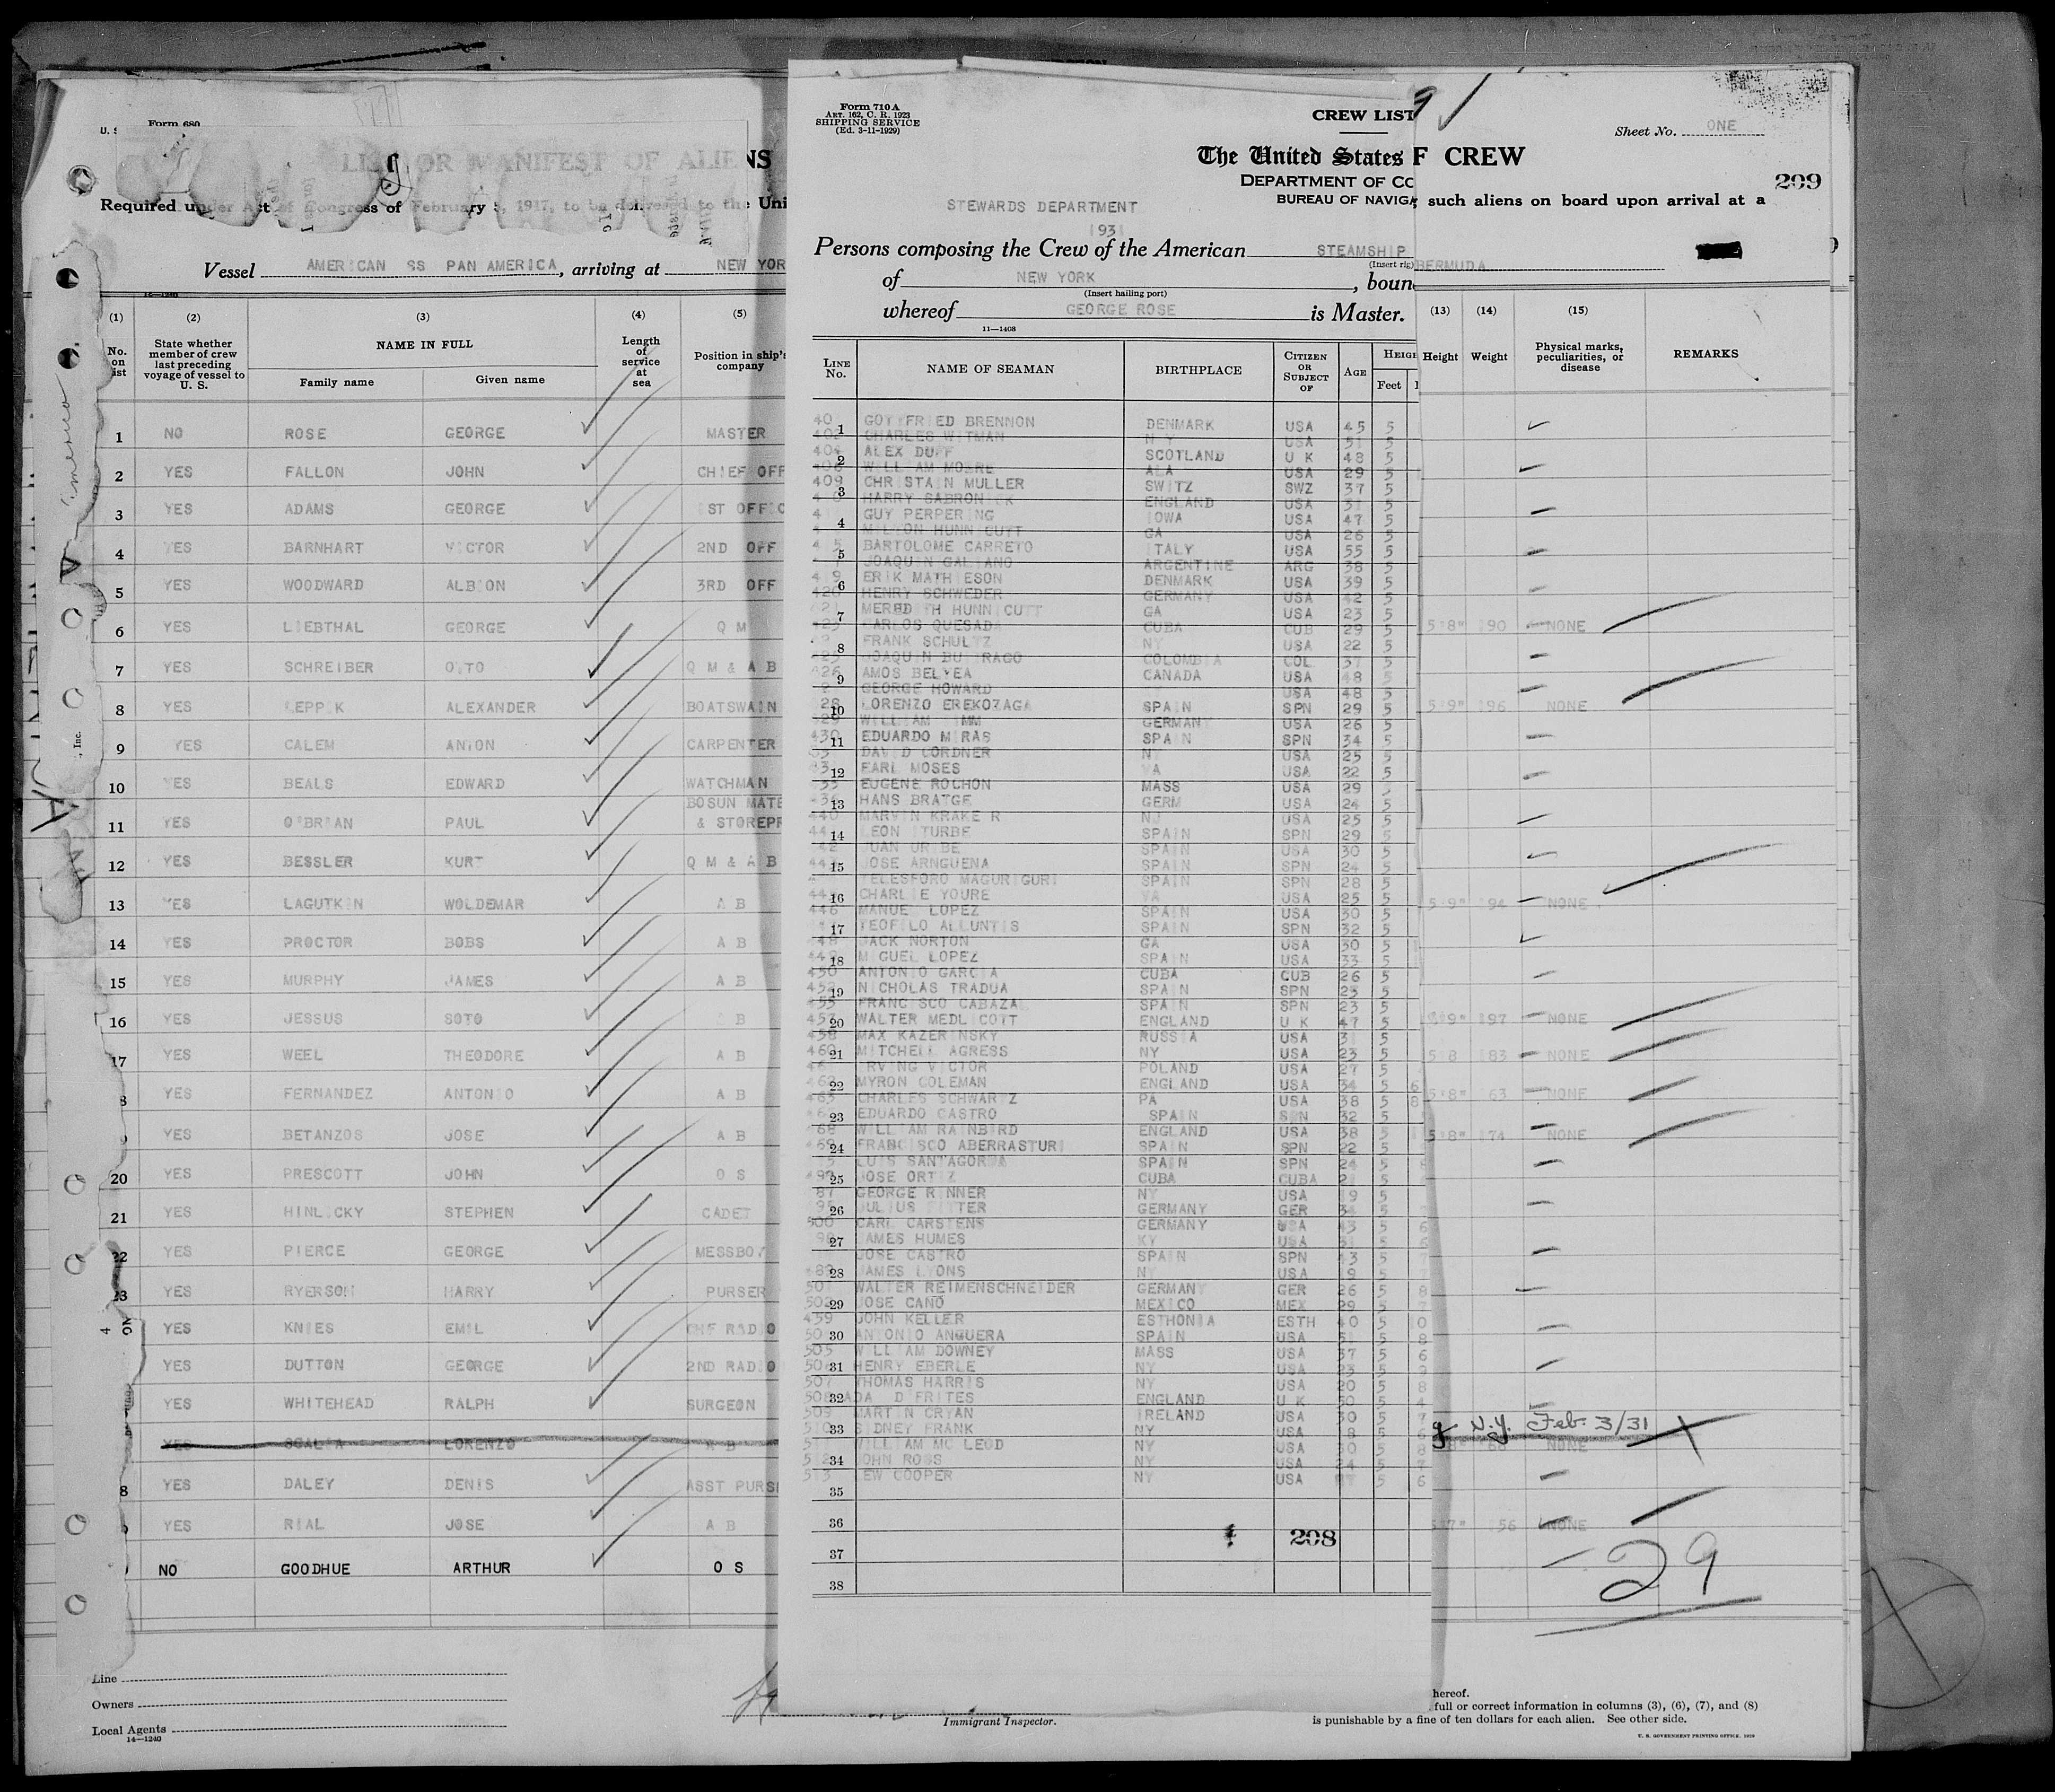 Form 680
U. S.
LIST OR MANIFEST OF ALIENS
Required under Act of Congress of February 5, 1917, to be delivered to the Uni
Vessel AMERICAN SS PAN AMERICA, arriving at NEW YOR
(1) (2) (3) (4) (5)
No. on list
State whether member of crew last preceding voyage of vessel to U. S.
NAME IN FULL
Family name Given name
Length of service at sea
Position in ship's company
1 NO ROSE GEORGE MASTER
2 YES FALLON JOHN CHIEF OFF
3 YES ADAMS GEORGE 1ST OFFIC
4 YES BARNHART VICTOR 2ND OFF
5 YES WOODWARD ALBION 3RD OFF
6 YES LIEBTHAL GEORGE Q M
7 YES SCHREIBER OTTO Q M & A B
8 YES LEPPIK ALEXANDER BOATSWAIN
9 YES CALEM ANTON CARPENTER
10 YES BEALS EDWARD WATCHMAN
11 YES O'BRIAN PAUL BOSUN MATE & STOREPR
12 YES BESSLER KURT Q M & A B
13 YES LAGUTKIN WOLDEMAR A B
14 YES PROCTOR BOBS A B
15 YES MURPHY JAMES A B
16 YES JESSUS SOTO A B
17 YES WEEL THEODORE A B
8 YES FERNANDEZ ANTONIO A B
YES BETANZOS JOSE A B
20 YES PRESCOTT JOHN O S
21 YES HINLICKY STEPHEN CADET
22 YES PIERCE GEORGE MESSBOY
23 YES RYERSON HARRY PURSER
4 YES KNIES EMIL CHF RADIO
YES DUTTON GEORGE 2ND RADIO
YES WHITEHEAD RALPH SURGEON
YES SCALIA LORENZO A B
8 YES DALEY DENIS ASST PURS
YES RIAL JOSE A B
NO GOODHUE ARTHUR O S
Line
Owners
Local Agents
14—1240
Immigrant Inspector.
Form 710 A
ART. 162, C. R. 1923
SHIPPING SERVICE
(Ed. 3-11-1929)
CREW LIST
The United States
DEPARTMENT OF CO
BUREAU OF NAVIGA
STEWARDS DEPARTMENT
1931
Persons composing the Crew of the American STEAMSHIP
(Insert rig)
of NEW YORK, boun
(Insert hailing port)
whereof GEORGE ROSE is Master.
11—1408
LINE No. NAME OF SEAMAN BIRTHPLACE CITIZEN OR SUBJECT OF AGE HEIG
Feet
GOTTFRIED BRENNON DENMARK USA 45 5
CHARLES WITMAN N Y USA 51 5
ALEX DUFF SCOTLAND U K 48 5
WILLIAM MOORE ALA USA 29 5
409 CHRISTAIN MULLER SWITZ SWZ 37 5
HARRY SABRONICK ENGLAND USA 31 5
GUY PERPERING IOWA USA 47 5
MILTON HUNNICUTT GA USA 26 5
BARTOLOME CARRETO ITALY USA 55 5
JOAQUIN GALIANO ARGENTINE ARG 38 5
419 ERIK MATHIESON DENMARK USA 39 5
420 HENRY SCHWEDER GERMANY USA 42 5
MEREDITH HUNNICUTT GA USA 23 5
CARLOS QUESADA CUBA CUB 29 5
FRANK SCHULTZ NY USA 22 5
JOAQUIN BUITRAGO COLOMBIA COL 37 5
426 AMOS BELYEA CANADA USA 48 5
GEORGE HOWARD USA 48 5
LORENZO EREKOZAGA SPAIN SPN 29 5
WILLIAM GERMANY USA 26 5
430 EDUARDO MIRAS SPAIN SPN 34 5
DAVID CORDNER NY USA 25 5
EARL MOSES VA USA 22 5
EUGENE ROCHON MASS USA 29
HANS BRATGE GERM USA 24 5
440 MARVIN KRAKER NJ USA 25 5
LEON ITURBE SPAIN SPN 29 5
JUAN URIBE SPAIN USA 30 5
JOSE ARNGUENA SPAIN SPN 24 5
TELESFORO MAGURIGURI SPAIN SPN 28 5
CHARLIE YOURE VA USA 25 5
446 MANUEL LOPEZ SPAIN USA 30 5
TEOFILO ALLUNTIS SPAIN SPN 32 5
448 JACK NORTON GA USA 30 5
449 MIGUEL LOPEZ SPAIN USA 33 5
450 ANTONIO GARCIA CUBA CUB 26 5
NICHOLAS TRADUA SPAIN SPN 23 5
FRANCISCO CABAZAL SPAIN SPN 23 5
WALTER MEDLICOTT ENGLAND U K 47 5
458 MAX KAZERINSKY RUSSIA USA 5
460 MITCHELL AGRESS NY USA 23 5
IRVING VICTOR POLAND USA 27 5
MYRON COLEMAN ENGLAND USA 34 5 6
CHARLES SCHWARTZ PA USA 38 5 8
EDUARDO CASTRO SPAIN SPN 32 5
WILLIAM RAINBIRD ENGLAND USA 38 5
FRANCISCO ABERRASTURI SPAIN SPN 22 5
LUIS SANTAGORDA SPAIN SPN 24 5
JOSE ORTIZ CUBA CUBA 5
GEORGE RINNER NY USA 19 5
JULIUS GERMANY GER 34 5
500 CARL CARSTENS GERMANY USA 43 5 6
JAMES HUMES KY USA 5
JOSE CASTRO SPAIN SPN 43 5
JAMES LYONS NY USA 19 5
501 WALTER REIMENSCHNEIDER GERMANY GER 26 5 8
502 JOSE CANO MEXICO MEX 29 5
459 JOHN KELLER ESTHONIA ESTH 40 5 0
ANTONIO ANGUERA SPAIN USA 5 8
505 WILLIAM DOWNEY MASS USA 37 5 6
HENRY EBERLE NY USA 23 5 9
507 THOMAS HARRIS NY USA 20 5 8
508 ADA DIFRITES ENGLAND U K 50 5 4
509 MARTIN CRYAN IRELAND USA 30 5 7
510 SIDNEY FRANK NY USA 18 5 6
WILLIAM MC LEOD NY USA 30 5 8
512 JOHN ROSS NY USA 24 5
513 LEW COOPER NY USA 5 6
208
Sheet No. ONE
F CREW
209
such aliens on board upon arrival at a
BERMUDA
(13) (14) (15)
Height Weight Physical marks, peculiarities, or disease REMARKS
5'8" 190 NONE
5'9" 196 NONE
5'9" 194 NONE
5'9" 197 NONE
5'8 183 NONE
5'8" 163 NONE
5'8" 174 NONE
N.Y. Feb. 3/31
NONE
5'7" 156 NONE
29
hereof.
full or correct information in columns (3), (6), (7), and (8)
is punishable by a fine of ten dollars for each alien. See other side.
U. S. GOVERNMENT PRINTING OFFICE. 1929